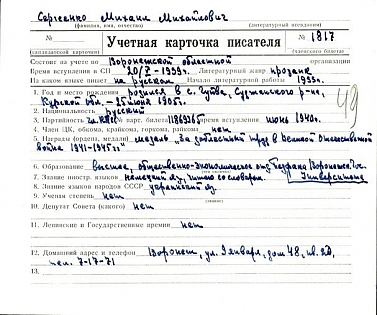 Сергеенко Михаил Михайлович
(фамилия, имя, отчество) (литературный псевдоним)
№ Учетная карточка писателя № 1817
(кандидатской карточки) (членского билета)
Состоит на учете во Воронежской областной организации
Время вступления в СП 20/V - 1939 г. Литературный жанр прозаик
На каком языке пишет на русском Начало литературной работы 1935 г.
1. Год и место рождения родился в с. Гуйва, Суджанского р-на,
Курской обл. – 25 июня 1905 г.
49
2. Национальность русский
3. Партийность чл. КПСС № парт. билета 1869365 время вступления июнь 1940 г.
4. Член ЦК, обкома, крайкома, горкома, райкома нет
5. Награды (ордена, медали) медаль „За доблестный труд в Великой Отечественной
войне 1941-1945 г."
6. Образование высшее, общественно-экономическое отд. педфака Воронежского
Университета
7. Знание иностр. языков немецкий яз., читаю со словарем.
8. Знание языков народов СССР украинский яз.
9. Ученая степень нет
10. Депутат Совета (какого) нет
11. Ленинские и Государственные премии нет
12. Домашний адрес и телефон Воронеж, ул. 9 января, дом 48, кв. 20,
тел. 7-17-71
13.